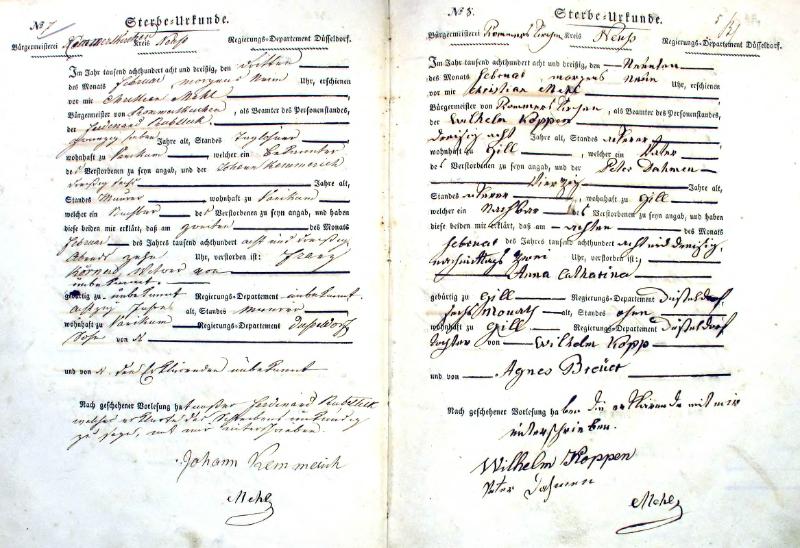 No 7
Sterbe-Urkunde.
Bürgermeisterei Rommerskirchen Kreis Neuß Regierungs-Departement Düsseldorf.
Im Jahr tausend achthundert acht und dreißig, den dritten
des Monats Februar morgens neun Uhr, erschienen
vor mir Christian Mehl
Bürgermeister von Rommerskirchen, als Beamter des Personenstandes,
der Ferdinand
zwanzig sieben Jahre alt, Standes Taglöhner
wohnhaft zu, welcher ein Bekannter
des Verstorbenen zu seyn angab, und der Johann Kemmerich
dreißig sechs Jahre alt,
Standes Maurer, wohnhaft zu
welcher ein Nachbar des Verstorbenen zu seyn angab, und haben
diese beiden mir erklärt, daß am zweiten des Monats
Februar des Jahres tausend achthundert acht und dreißig,
Abends zehn Uhr, verstorben ist: Franz
Witwer von
unbekannt.
gebürtig zu unbekannt Regierungs-Departement unbekannt
achtzig Jahre alt, Standes Maurer
wohnhaft zu Regierungs-Departement Düsseldorf
Sohn von
und von den Erklärenden unbekannt
Nach geschehener Vorlesung hat außer Ferdinand
welcher erklärte des Schreibens unkundig
zu seyn, mit mir unterschrieben
Johann Kemmerich
Mehl
No 8.
Sterbe-Urkunde.
Bürgermeisterei Rommerskirchen Kreis Neuß
Regierungs-Departement Düsseldorf.
Im Jahr tausend achthundert acht und dreißig, den Neunten
des Monats Februar morgens neun Uhr, erschienen
vor mir Christian Mehl
Bürgermeister von Rommerskirchen, als Beamter des Personenstandes,
der Wilhelm Koppen
dreißig acht Jahre alt, Standes Ackerer
wohnhaft zu Gill, welcher ein Vater
des Verstorbenen zu seyn angab, und der Peter Dahmen
Vierzig Jahre alt,
Standes Ackerer, wohnhaft zu Gill
welcher ein Nachbar des Verstorbenen zu seyn angab, und haben
diese beiden mir erklärt, daß am achten des Monats
Februar des Jahres tausend achthundert acht und dreißig,
nachmittags zwei Uhr, verstorben ist:
Anna Catharina
gebürtig zu Gill Regierungs-Departement Düsseldorf,
sechs Monath alt, Standes ohne
wohnhaft zu Gill Regierungs-Departement Düsseldorf
Tochter von Wilhelm Kopp
und von Agnes Breuer
Nach geschehener Vorlesung haben die erklärende mit mir
unterschrieben.
Wilhelm Koppen
Peter Dahmen
Mehl